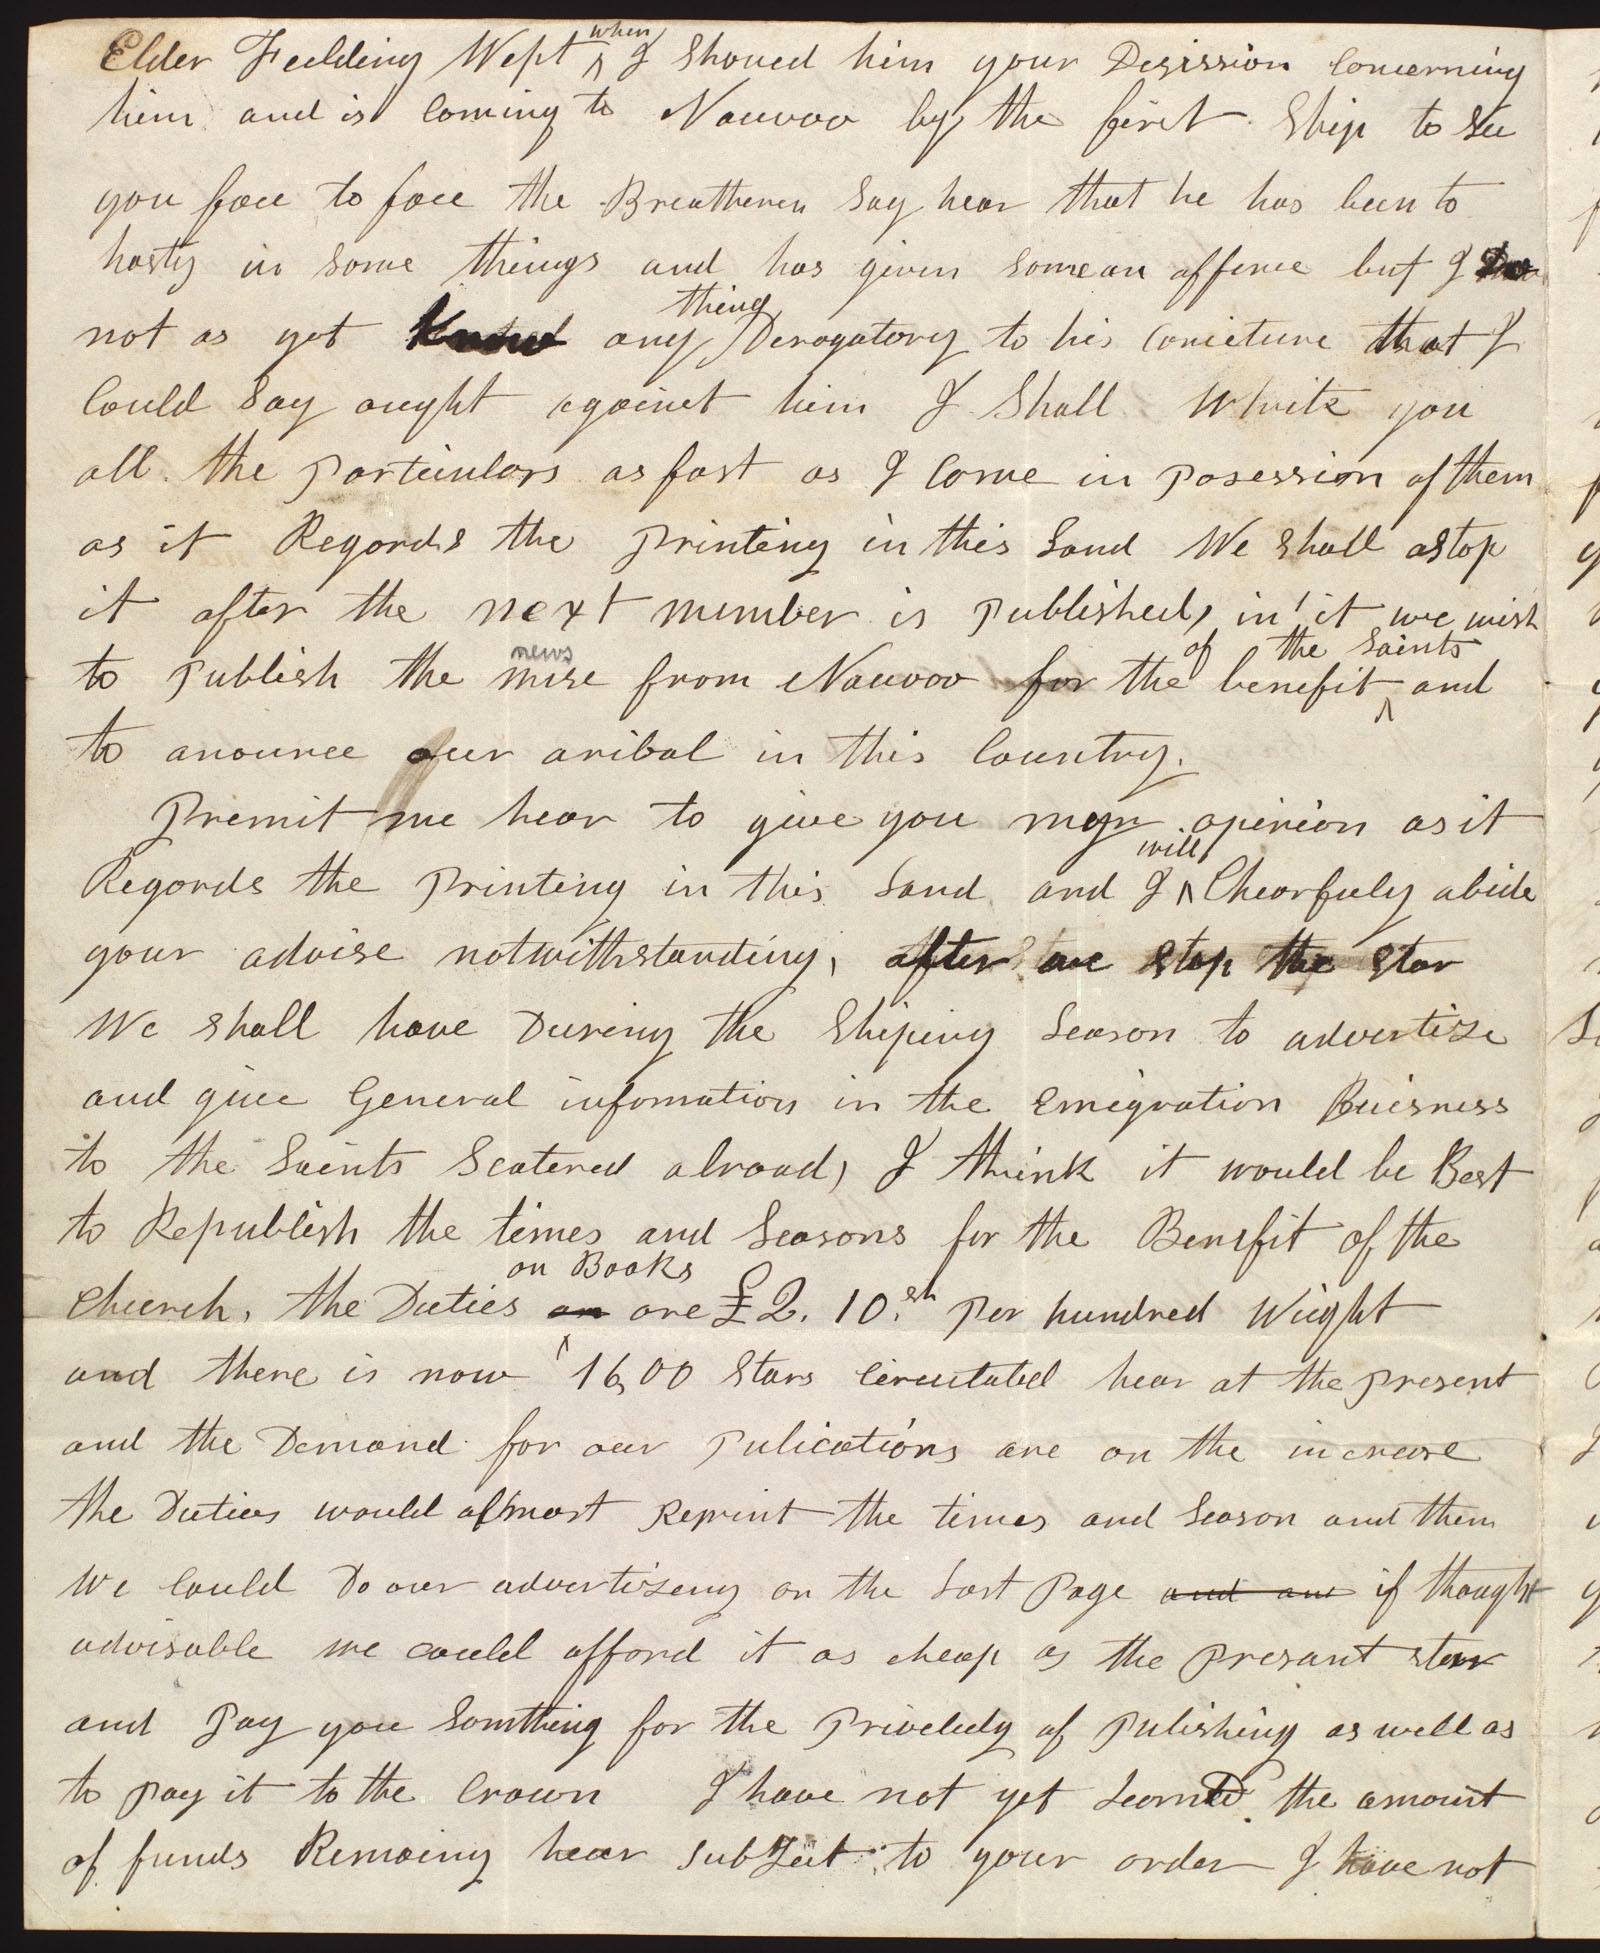 Elder Feilding Wept when I Showed him your Desission Concerning
him and is Coming to Nauvoo by the first Ship to See
you face to face the Breatheren Say hear that he has been to
hasty in Some things and has given Some an offence but I Do
not as yet Know any thing Derogatory to his Caricture that I
Could Say aught against him I Shall Write you
all the particulars as fast as I Come in posession of them
as it Regards the printing in this Land We shall astop
it after the next number is published, in it we wish
to publish the nuse news from Nauvoo for the benefit of the Saints and
to anounce our aribal in this Country.
Premit me hear to give you my opinion as it
Regards the printing in this Land and I will Chearfuly abide
your advise notwithstanding, after we stop the star
We shall have Dureing the Shiping Season to advertize
and give General infomation in the Emigration Buisness
to the Saints Scatered abroad, I think it would be Best
to Republish the times and Seasons for the Benefit of the
Church, the Duties on on Books are £2. 10.sh per hundred Wieght
and there is now 16,00 Stars Circulated hear at the present
and the Demand for our pulications are on the increase
the Duties would almost Reprint the times and Season and then
We Could Do our advertizeing on the Last page and and if thought
advisable we could afford it as cheap as the presant star
and pay you Somthing for the Priveledg of pulishing as well as
to pay it to the Crown I have not yet Learned the amount
of funds Remaing hear subject to your order I have not